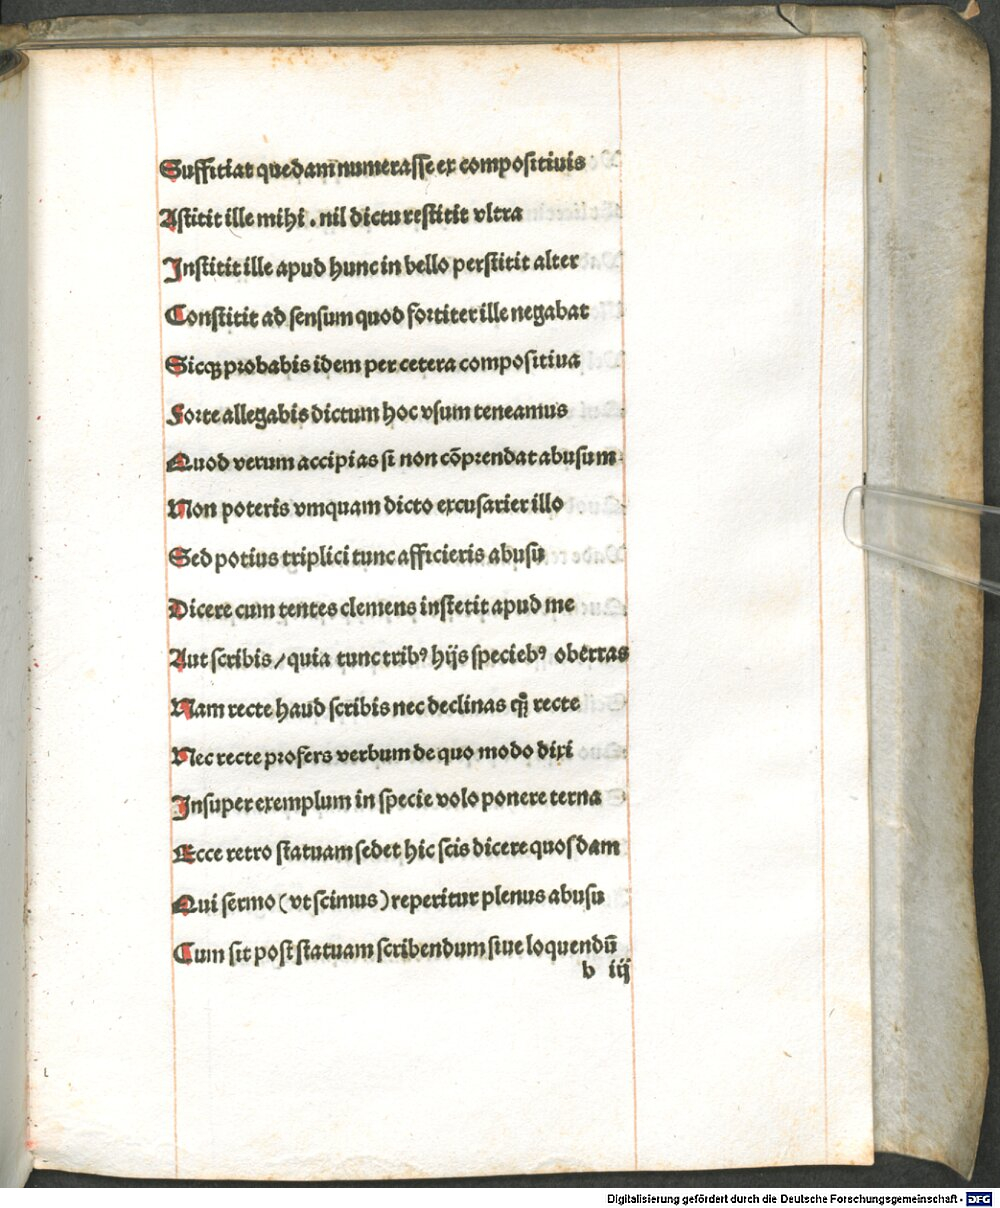 Suffitiat quedam numerasse ex compositiuis
Astitit ille mihi . nil dictu restitit vltra
Institit ille apud hunc in bello perstitit alter
Constitit ad sensum quod fortiter ille negabat
Sicqꝫ probabis idem per cetera compositiua
Forte allegabis dictum hoc vsum teneamus
Quod verum accipias si non cōprendat abusum
Non poteris vmquam dicto excusarier illo
Sed potius triplici tunc afficieris abusu
Dicere cum tentes clemens instetit apud me
Aut scribis / quia tunc tribꝰ hijs speciebꝰ oberras
Nam recte haud scribis nec declinas qm̄ recte
Nec recte profers verbum de quo modo dixi
Insuper exemplum in specie volo ponere terna
Ecce retro statuam sedet hic scis dicere quosdam
Qui sermo ( vt scimus ) reperitur plenus abusu
Cum sit post statuam scribendum siue loquendū
b iij
Digitalisierung gefördert durch die Deutsche Forschungsgemeinschaft - DFG